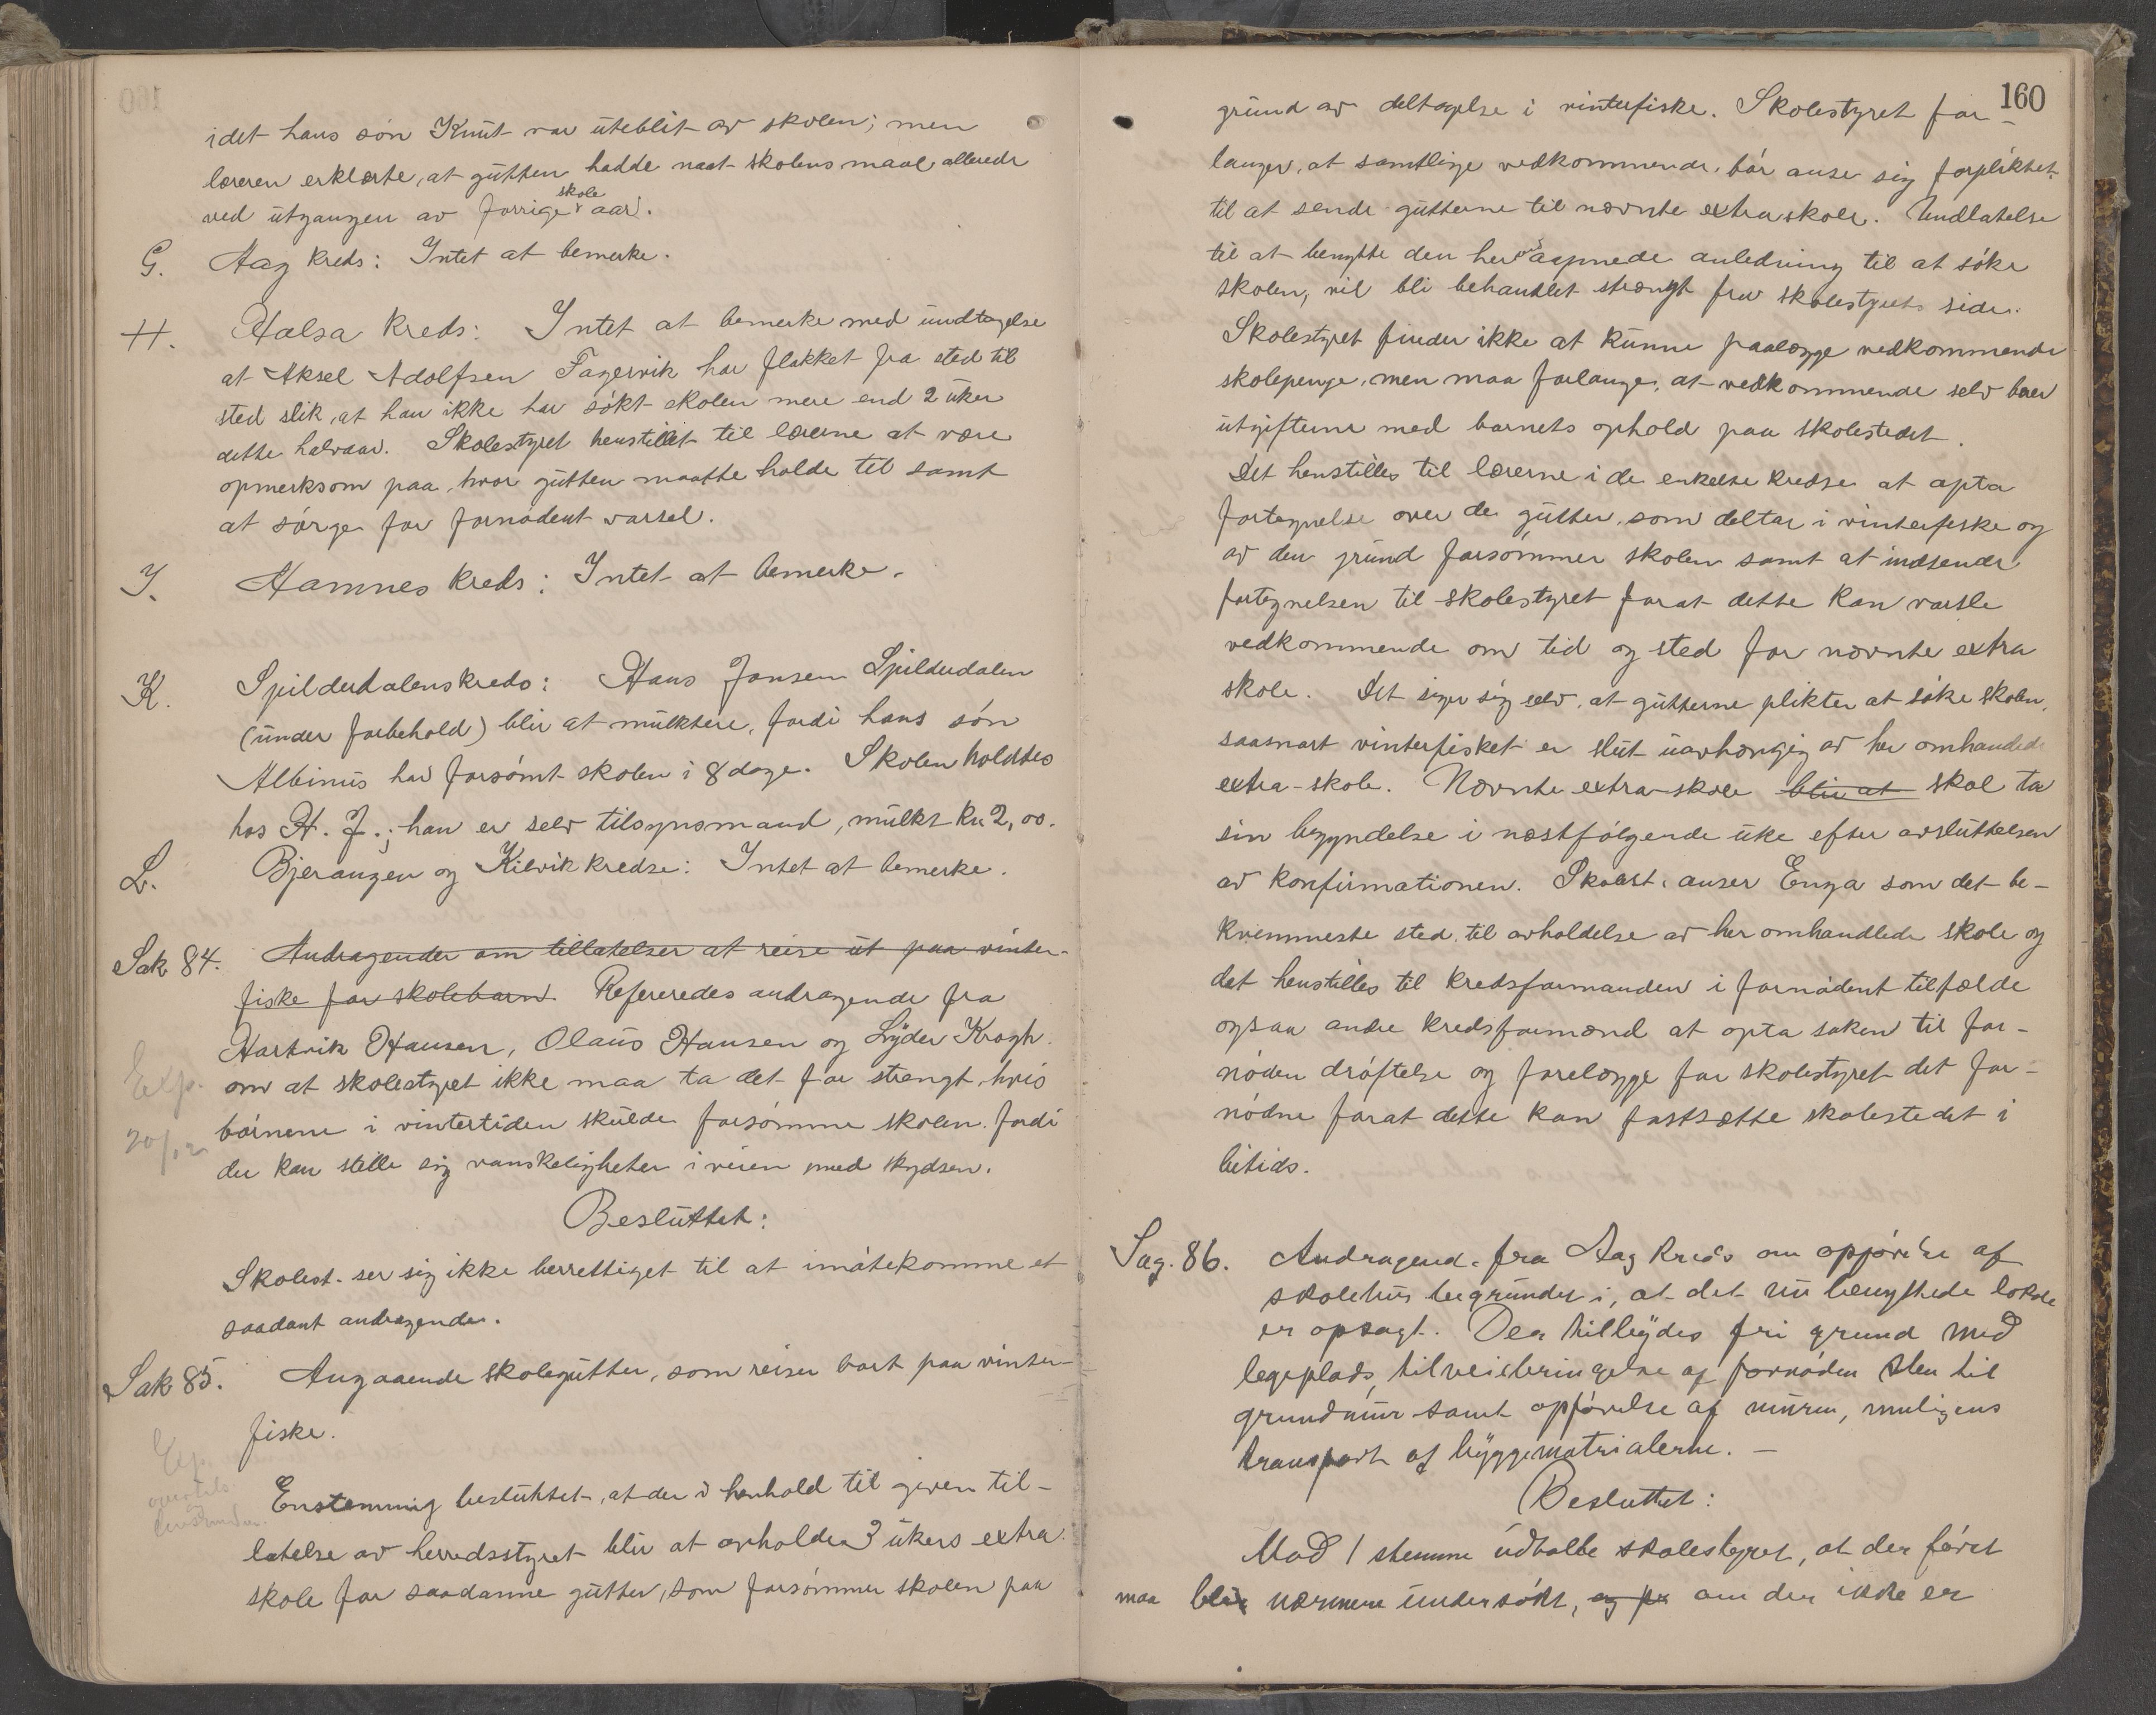 idet hans søn Knut var uteblit av skolen; men
læreren erklærte, at gutten hadde naat skolens maal allerede
ved utgangen av forrige skole aar.
G. Aag kreds: Intet at bemerke.
H. Halsa kreds: Intet at bemerke med undtagelse
at Aksel Adolfsen Fagervik har flakket fra sted til
sted slik, at han ikke har søkt skolen mere end 2 uker
dette halvaar. Skolestyret henstillet til lærerne at være
opmerksom paa, hvor gutten maatte holde til samt
at sørge for fornødent varsel.
I. Hamnes kreds: Intet at bemerke.
K. Spilderdalens kreds: Hans Jansen Spilderdalen
(under forbehold) blir at mulktere, fordi hans søn
Albinus har forsømt skolen i 8 dage. Skolen holdtes
hos H. J.; han er selv tilsynsmand, mulkt kr. 2,00.
L. Bjerangen og Kilvik kredse: Intet at bemerke.
Sak 84. Andragender om tillatelser at reise ut paa vinter-
fiske for skolebarn. Refereredes andragende fra
Hartvik Hansen, Olaus Hansen og Lyder Krogh.
Exp.
om at skolestyret ikke maa ta det for strengt, hvis
20/12
børnene i vintertiden skulde forsømme skolen. fordi
der kan stille sig vanskeligheter i veien med skydsen.
Besluttet:
Skolest. ser sig ikke berrettiget til at imøtekomme et
saadant andragende.
Sak 85. Angaaende skolegutter, som reiser bort paa vinter-
fiske.
Exp.
Enstemmig besluttet, at der i henhold til given til-
latelse av herredsstyret blir at avholde 3 ukers extra
skole for saadanne gutter, som forsømmer skolen paa
160
grund av deltagelse i vinterfiske. Skolestyret for-
langer, at samtlige vedkommende bør anse sig forpliktet
til at sende gutterne til nævnte extraskole. Undlatelse
til at benytte den herved aapnede anledning til at søke
skolen, vil bli behandlet strængt fra skolestyrets side.
Skolestyret finder ikke at kunne paalægge vedkommende
skolepenge, men maa forlange, at vedkommende selv bær
utgifterne med barnets ophold paa skolestedet.
Det henstilles til lærerne i de enkelte kredse at opta
fortegnelse over de gutter, som deltar i vinterfiske og
av den grund forsømmer skolen samt at indsende
fortegnelsen til skolestyret forat dette kan varsle
vedkommende om tid og sted for nævnte extra
skole. Det siger sig selv, at gutterne plikter at søke skolen,
saasnart vinterfisket er slut uavhængig av her omhandlede
extra-skole. Nævnte extra-skole blir at skal ta
sin begyndelse i næstfølgende uke efter avsluttelsen
av konfirmationen. Skolest. anser Enga som det be-
kvemmeste sted til avholdelse av her omhandlede skole og
det henstilles til kredsformanden i fornødent tilfælde
ogsaa andre kredsformænd at opta saken til for-
nøden drøftelse og forelægge for skolestyret det for-
nødne forat dette kan fastsætte skolestedet i
betids.
Sag. 86. Andragend. fra Aag kreds om opførelse af
skolehus begrunder i, at det nu benyttede lokale
er opsagt. Der tilbydes fri grund med
legeplads, tilveiebringelse af fornøden sten til
grundmur samt opførelse af muren, muligens
transport af byggematrialerne. —
Besluttet:
Mod 1 stemme udtalte skolestyret, at der først
maa blir nærmere undersøkt, og om der ikke er